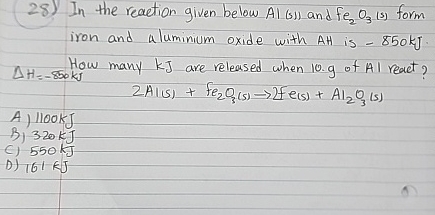 28) In the reaction given below Al (s) and Fe2 O3 (s) form
iron and aluminium oxide with ΔH is - 850kJ.
ΔH=-850kJ How many kJ are released when 10.g of Al react?
2Al(s) + Fe2O3(s) → 2Fe(s) + Al2O3 (s)
A) 1100KJ
B) 320 KJ
C) 550 KJ
D) 161 KJ